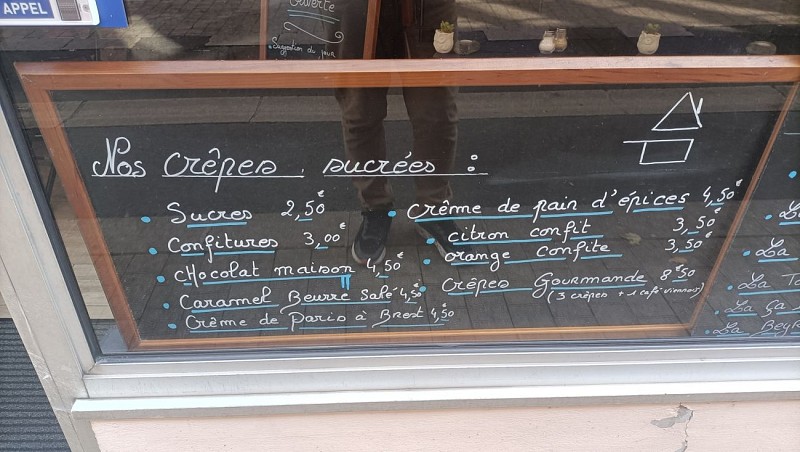 APPEL
Ouverte
Suggestion du jour
Nos crêpes sucrées :
• Sucres 2,50€
• Confitures 3,00€
• cHocolat maison 4,50€
• Caramel Beurre Salé 4,50
• Crème de Paris à Brest 4,50
• crême de pain d'épices 4,50€
• citron confit 3,50€
• orange confite 3,50€
• Crêpes Gourmande 8€50
(3 crêpes + 1 café viennois)
• La
• La
• La
• La